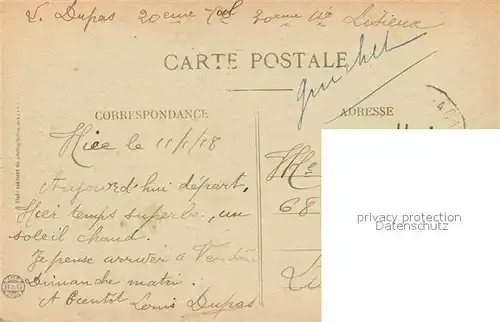 L. Dupas 20eme 30eme Cie Lisieux
CARTE POSTALE
guichet
CORRESPONDANCE
ADRESSE
Nice le 11/1/18
Me
Aujourd'hui départ,
Hier temps superbe, un
68
soleil chaud.
Je pense arriver à
Dimanche matin.
A Bientôt Louis Dupas
B&G
privacy protection
Datenschutz